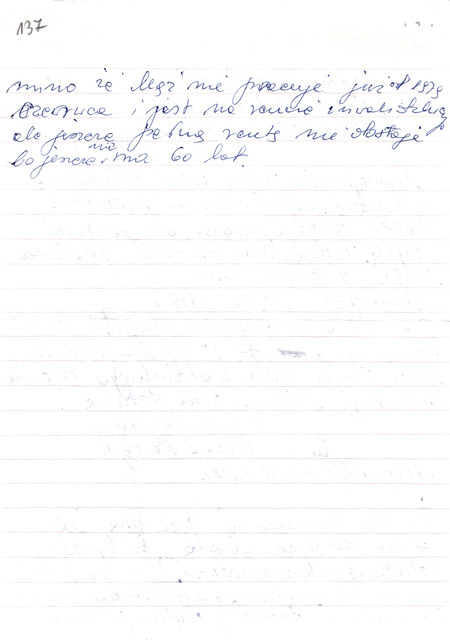 137
mimo że mąż nie pracuje już od 1979
czerwca i jest na rencie inwalidzkiej
ale jeszcze pełną rentę nie dostaje
bo jeszcze nie ma 60 lat